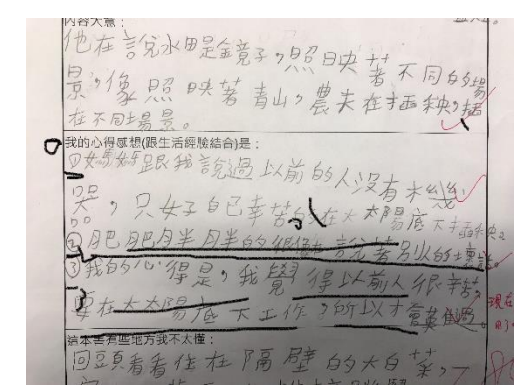 內容大意：
他在說水田是鏡子，照映著不同的場
景，像照映著青山，農夫在插秧，插
在不同場景。
我的心得感想(跟生活經驗結合)是：
①媽媽跟我說過以前的人沒有木幾
器，只女子自己辛苦的在大太陽底下插秧。
②肥肥月半月半的 說著別以的壞話。
③我的心得是，我覺得以前人很辛苦，
要在大太陽底下工作，所以才會英俊。
現在
這本書有些地方我不太懂：
回頭看看住在隔壁的大白菜，一